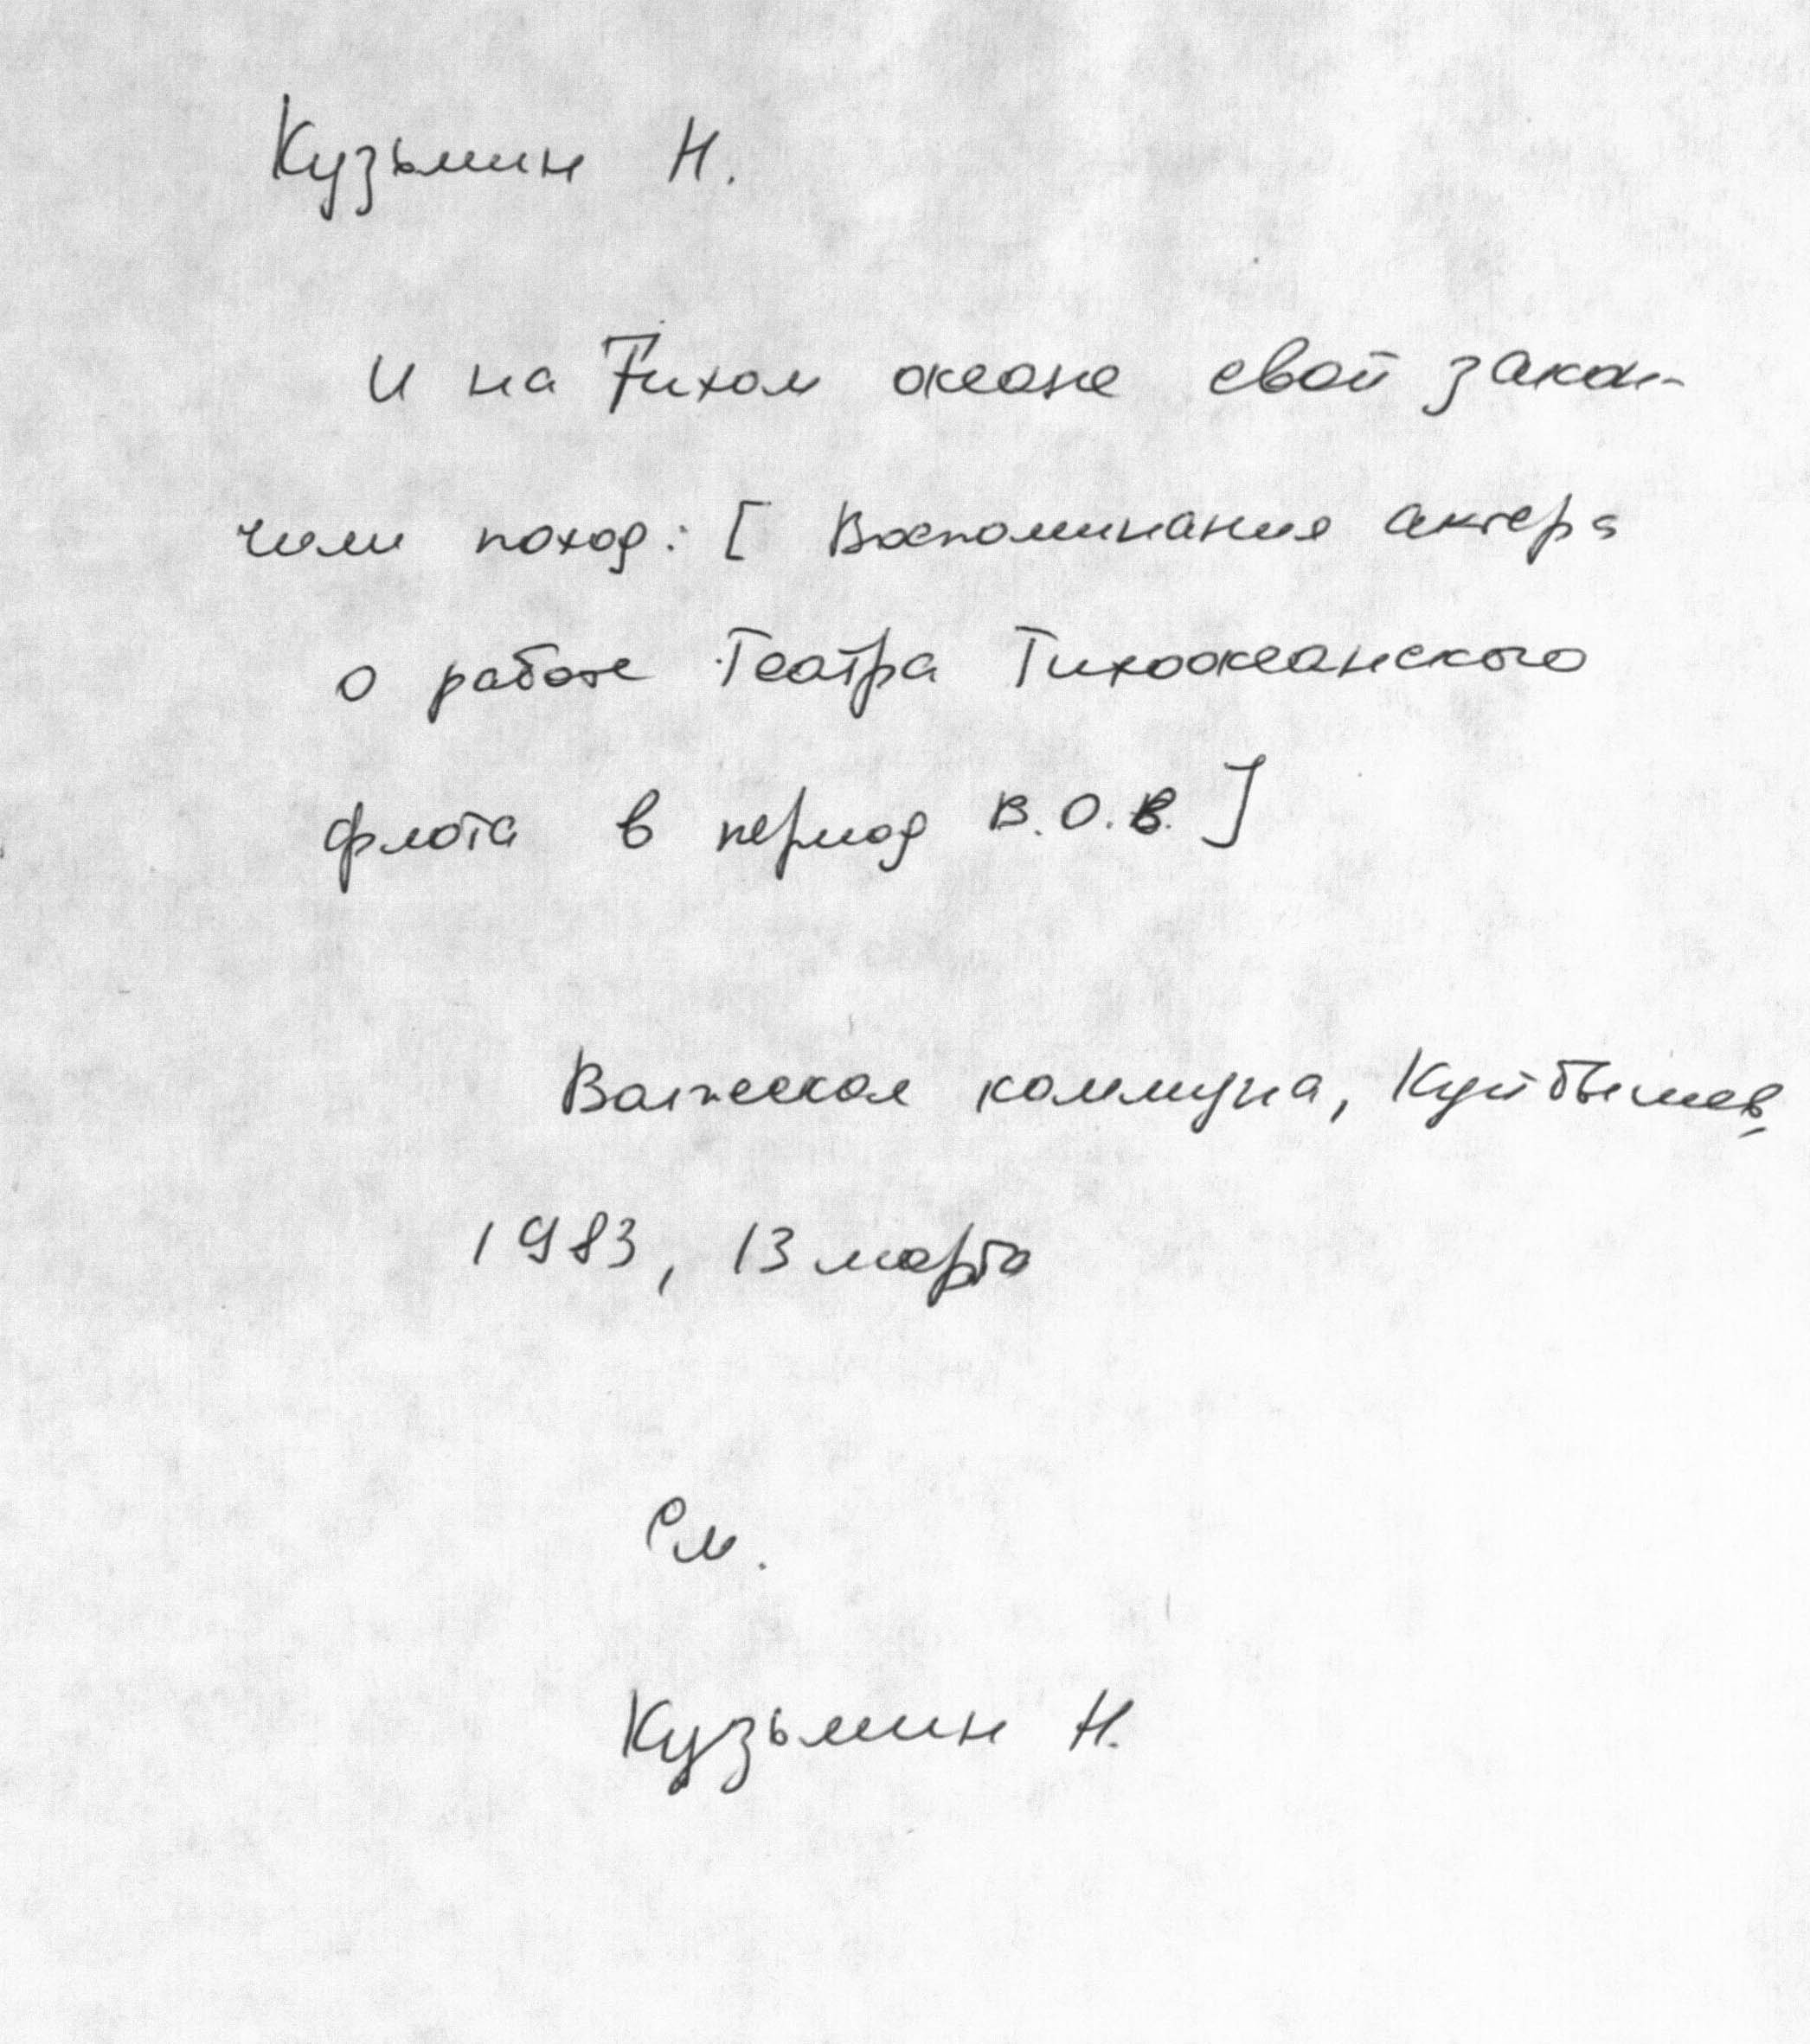 Кузьмин Н.
И на Тихом океане свой закон-
чили поход: [ Воспоминания актера
о работе Театра Тихоокеанского
флота в период В.О.В. ]
Волжская коммуна, Куйбышев,
1983, 13 марта
См.
Кузьмин Н.